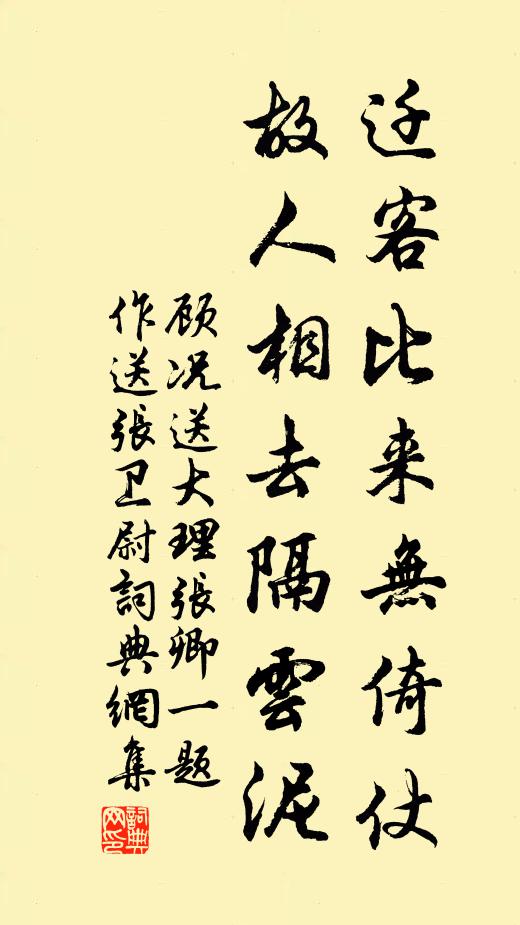 迁客比来無倚仗
故人相去隔雲泥
顾况送大理張卿一题
作送張卫尉詞典網集
詞典网印